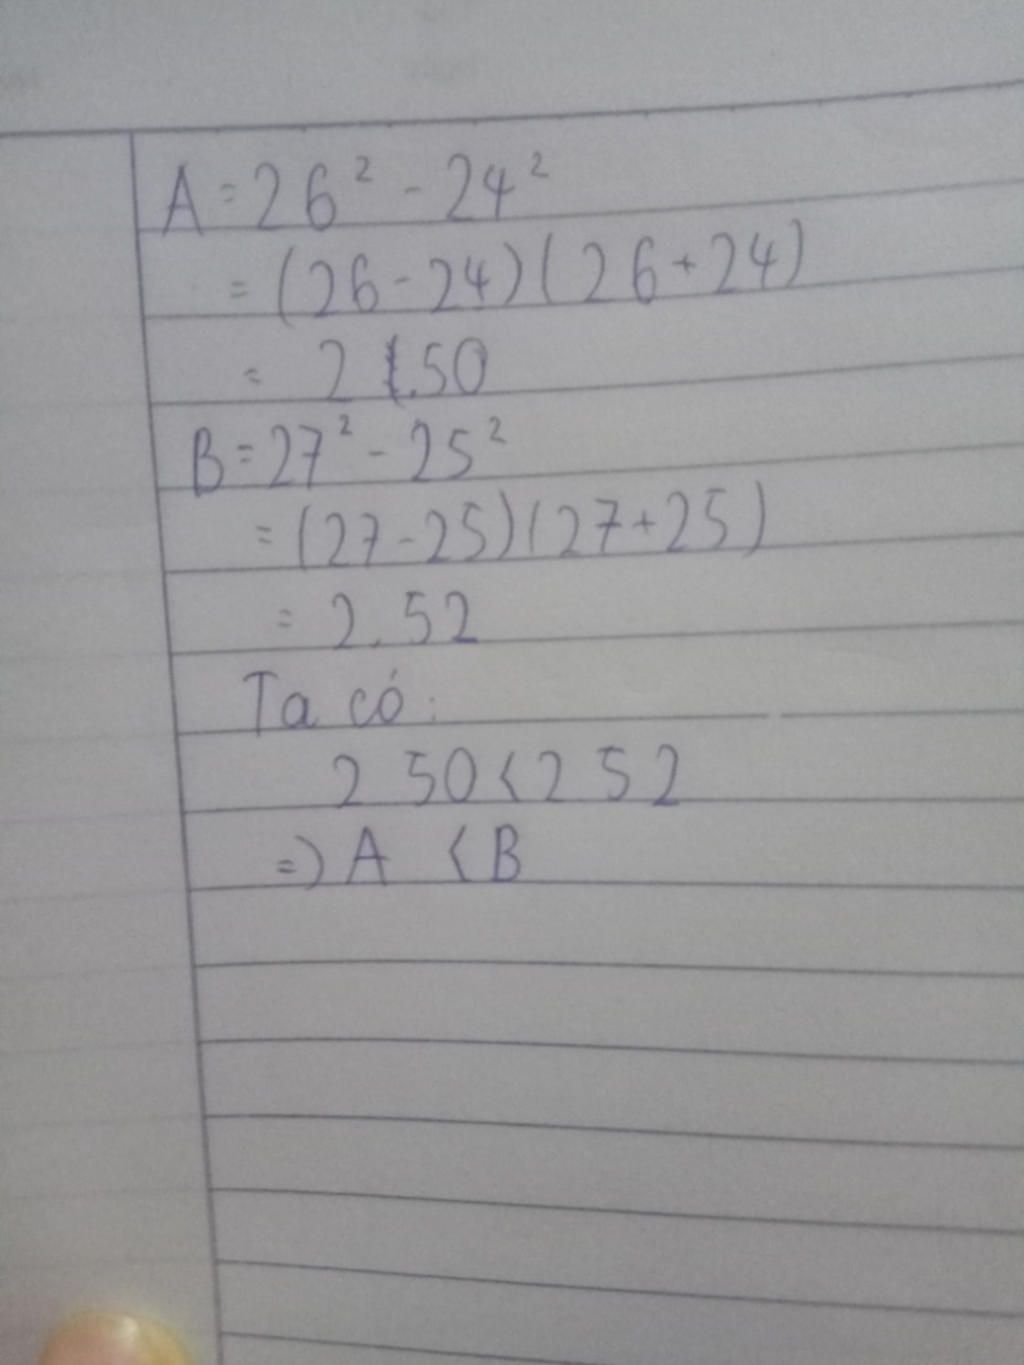 A = 26² - 24²
= (26 - 24)(26 + 24)
= 2 .50
B = 27² - 25²
= (27 - 25)(27 + 25)
= 2.52
Ta có:
2 50 < 2 52
=) A < B